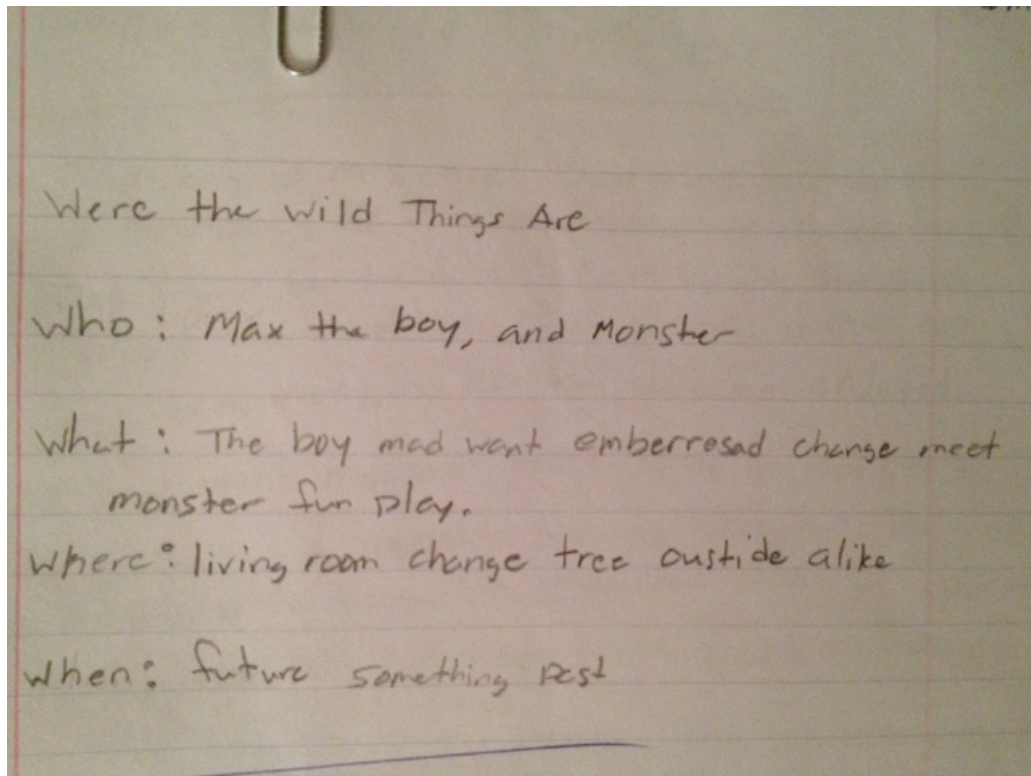 Were the Wild Things Are
Who: Max the boy, and Monster
What: The boy mad want emberresad change meet
monster fun play.
Where: living room change tree oustide alike
When: future something past